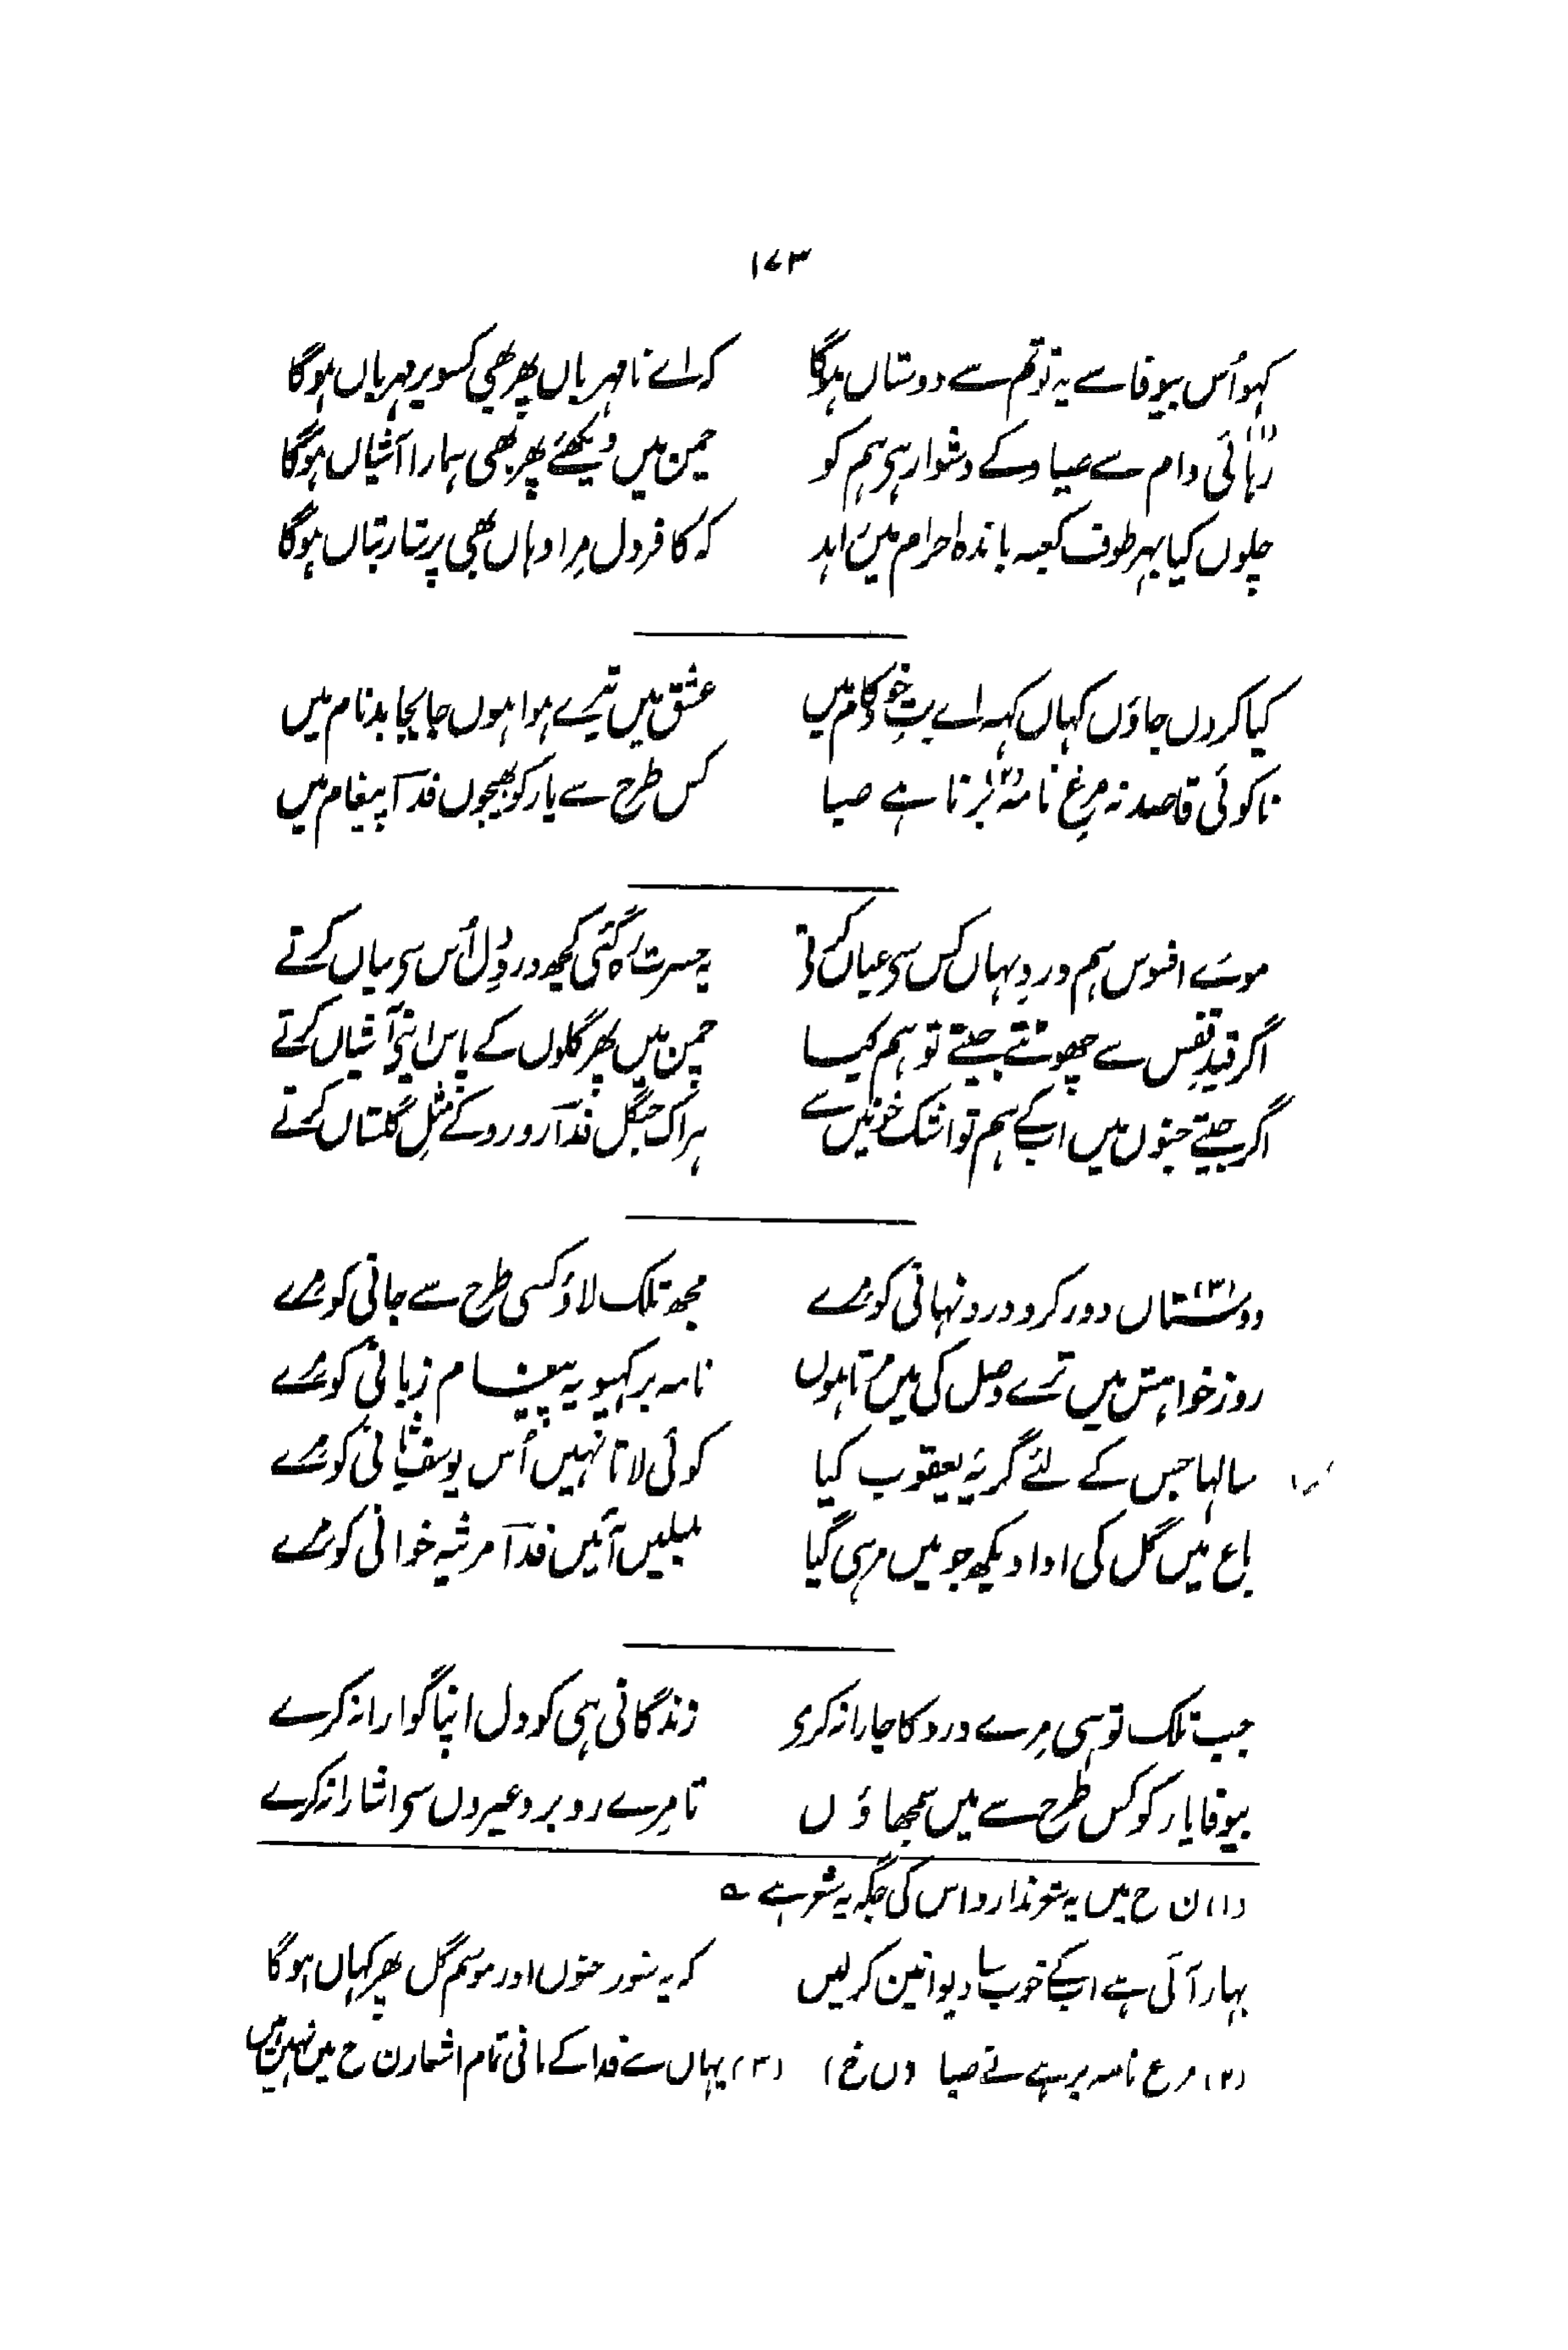 ۱۷۳
کہو اُس بیوفا سے یہ تو تم سے دوستاں ہوگا کہ اے نا مہرباں پھر بھی کسو پر مہرباں ہوگا
رہائی(۱) دام سے صیاد کے دشوار ہی ہم کو چمن میں دیکھئے پھر بھی ہمارا آشیاں ہوگا
چلوں کیا بہر طوف کعبہ باندہ احرام میں زاہد کہ کافر دل مِرا وہاں بھی پرستار بتاں ہوگا
کیا کروں جاؤں کہاں کہہ اے بتِ خود کام میں عشق میں تیرے ہوا ہوں جابجا بدنام میں
نا کوئی قاصد نہ مرغ نامہ(۲) بر نا ہے صبا کس طرح سے یار کو بھیجوں فداؔ پیغام میں
موئے افسوس ہم دردِ نہاں کس سی عیاں کرتے یہ حسرت رہ گئی کچھ دردِ دل اُس سی بیاں کرتے
اگر قیدِ قفس سے چھوٹتے جیتے تو ہم کیسا چمن میں پھر گلوں کے پاس اپنی آشیاں کرتے
اگر جیتے جنوں میں ابکے ہم تو اشک خونیں سے ہر اک جنگل فداؔ رو رو کے مثلِ گلستاں کرتے
دوستاں(۳) دور کرو درد نہانی کو مرے مجھ تلک لاؤ کسی طرح سے جانی کو مرے
روز خواہش میں ترے وصل کی میں مرتا ہوں نامہ بر کہیو یہ پیغام زبانی کو مرے
سالہا جس کے لئے گریۂ یعقوب کیا کوئی لاتا نہیں اُس یوسفِ ثانی کو مرے
باغ میں گل کی ادا دیکھ جو میں مر ہی گیا بلبلیں آئیں فداؔ مرثیہ خوانی کو مرے
جب تلک تو ہی مِرے درد کا چارا نہ کری زندگانی ہی کو دل اپنا گوارا نہ کرے
بیوفا یار کو کس طرح سے میں سمجھاؤں تا مِرے رو برو غیروں سی اشارا نہ کرے
(۱) ن ح میں یہ شعر ندارد اس کی جگہ یہ شعر ہے ؎
بہار آئی ہے ابکے خوب سا دیوانپن کرلیں کہ یہ شور جنوں اور موسم گل پھر کہاں ہوگا
(۲) مرغ نامہ بر ہے نے صبا (ن ح) (۳) یہاں سے فدا کے باقی تمام اشعار ن ح میں نہیں ہیں